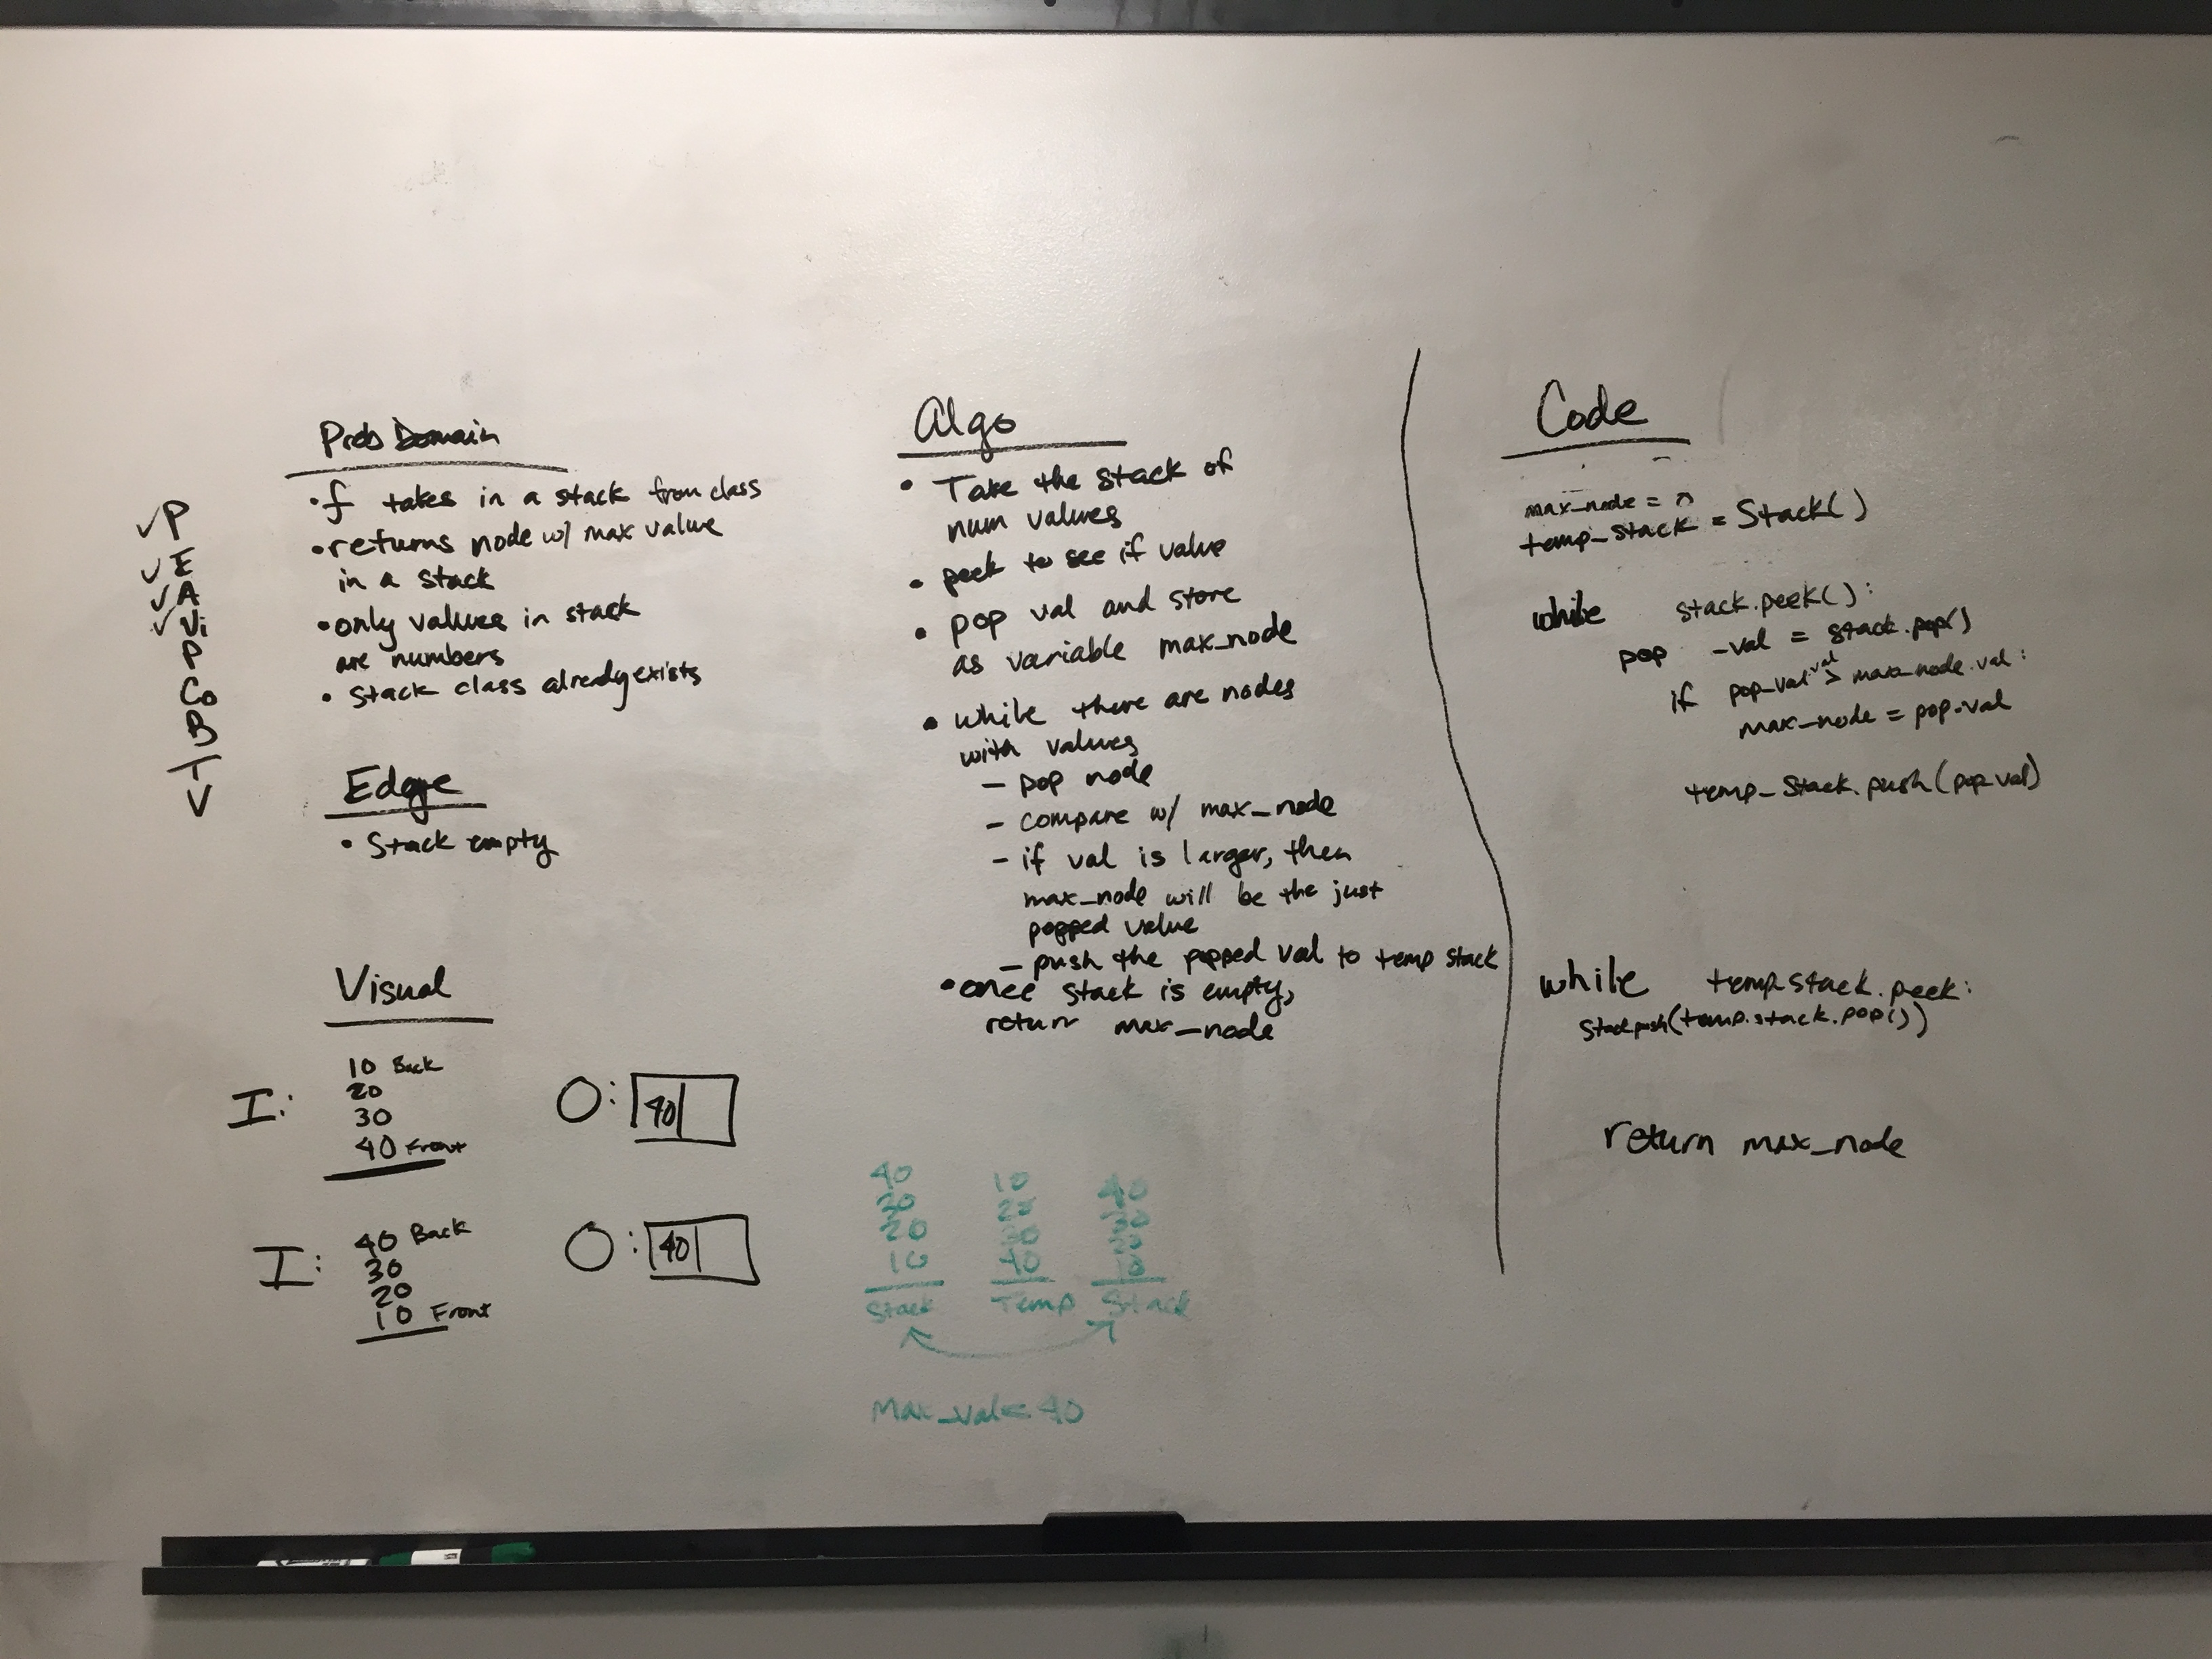 ✓P
✓E
✓A
✓Vi
P
Co
B
T
V
Prob Domain
• f takes in a stack from class
• returns node w/ max value
in a stack
• only values in stack
are numbers
• Stack class already exists
Edge
• Stack empty
Visual
I:
10 Back
20
30
40 Front
O: 40
I:
40 Back
30
20
10 Front
O: 40
Algo
• Take the stack of
num values
• peek to see if value
• pop val and store
as variable max_node
• while there are nodes
with values
– pop node
– compare w/ max_node
– if val is larger, then
max_node will be the just
popped value
– push the popped val to temp stack
• once stack is empty,
return max_node
40 10 40
30 20 30
20 30 20
10 40 10
Stack Temp Stack
Max_val = 40
Code
max_node = 0
temp_stack = Stack()
while stack.peek():
pop _val = stack.pop()
if pop_val.val > max_node.val:
max_node = pop_val
temp_stack.push(pop_val)
while temp_stack.peek:
stack.push(temp.stack.pop())
return max_node